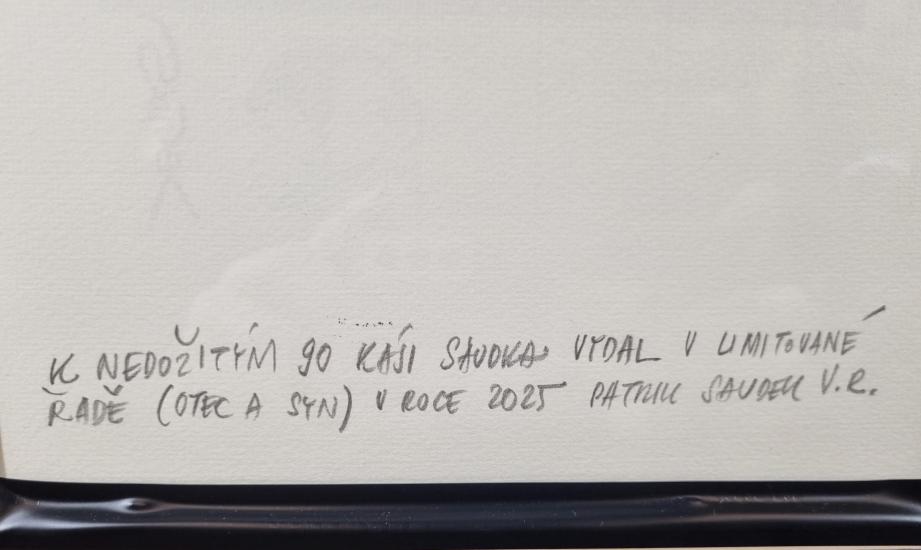 K NEDOŽITÝM 90 KÁJI SAUDKA VYDAL V LIMITOVANÉ
ŘADĚ (OTEC A SYN) V ROCE 2025 PATRIK SAUDEK V.R.